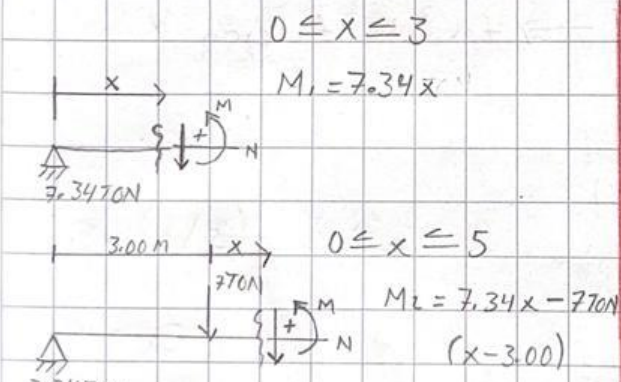 0 ≤ x ≤ 3
x
M₁ = 7.34x
M
+
N
7.34TON
3.00 M
x
0 ≤ x ≤ 5
7TON
M₂ = 7.34x - 7TON
(x-3.00)
M
+
N